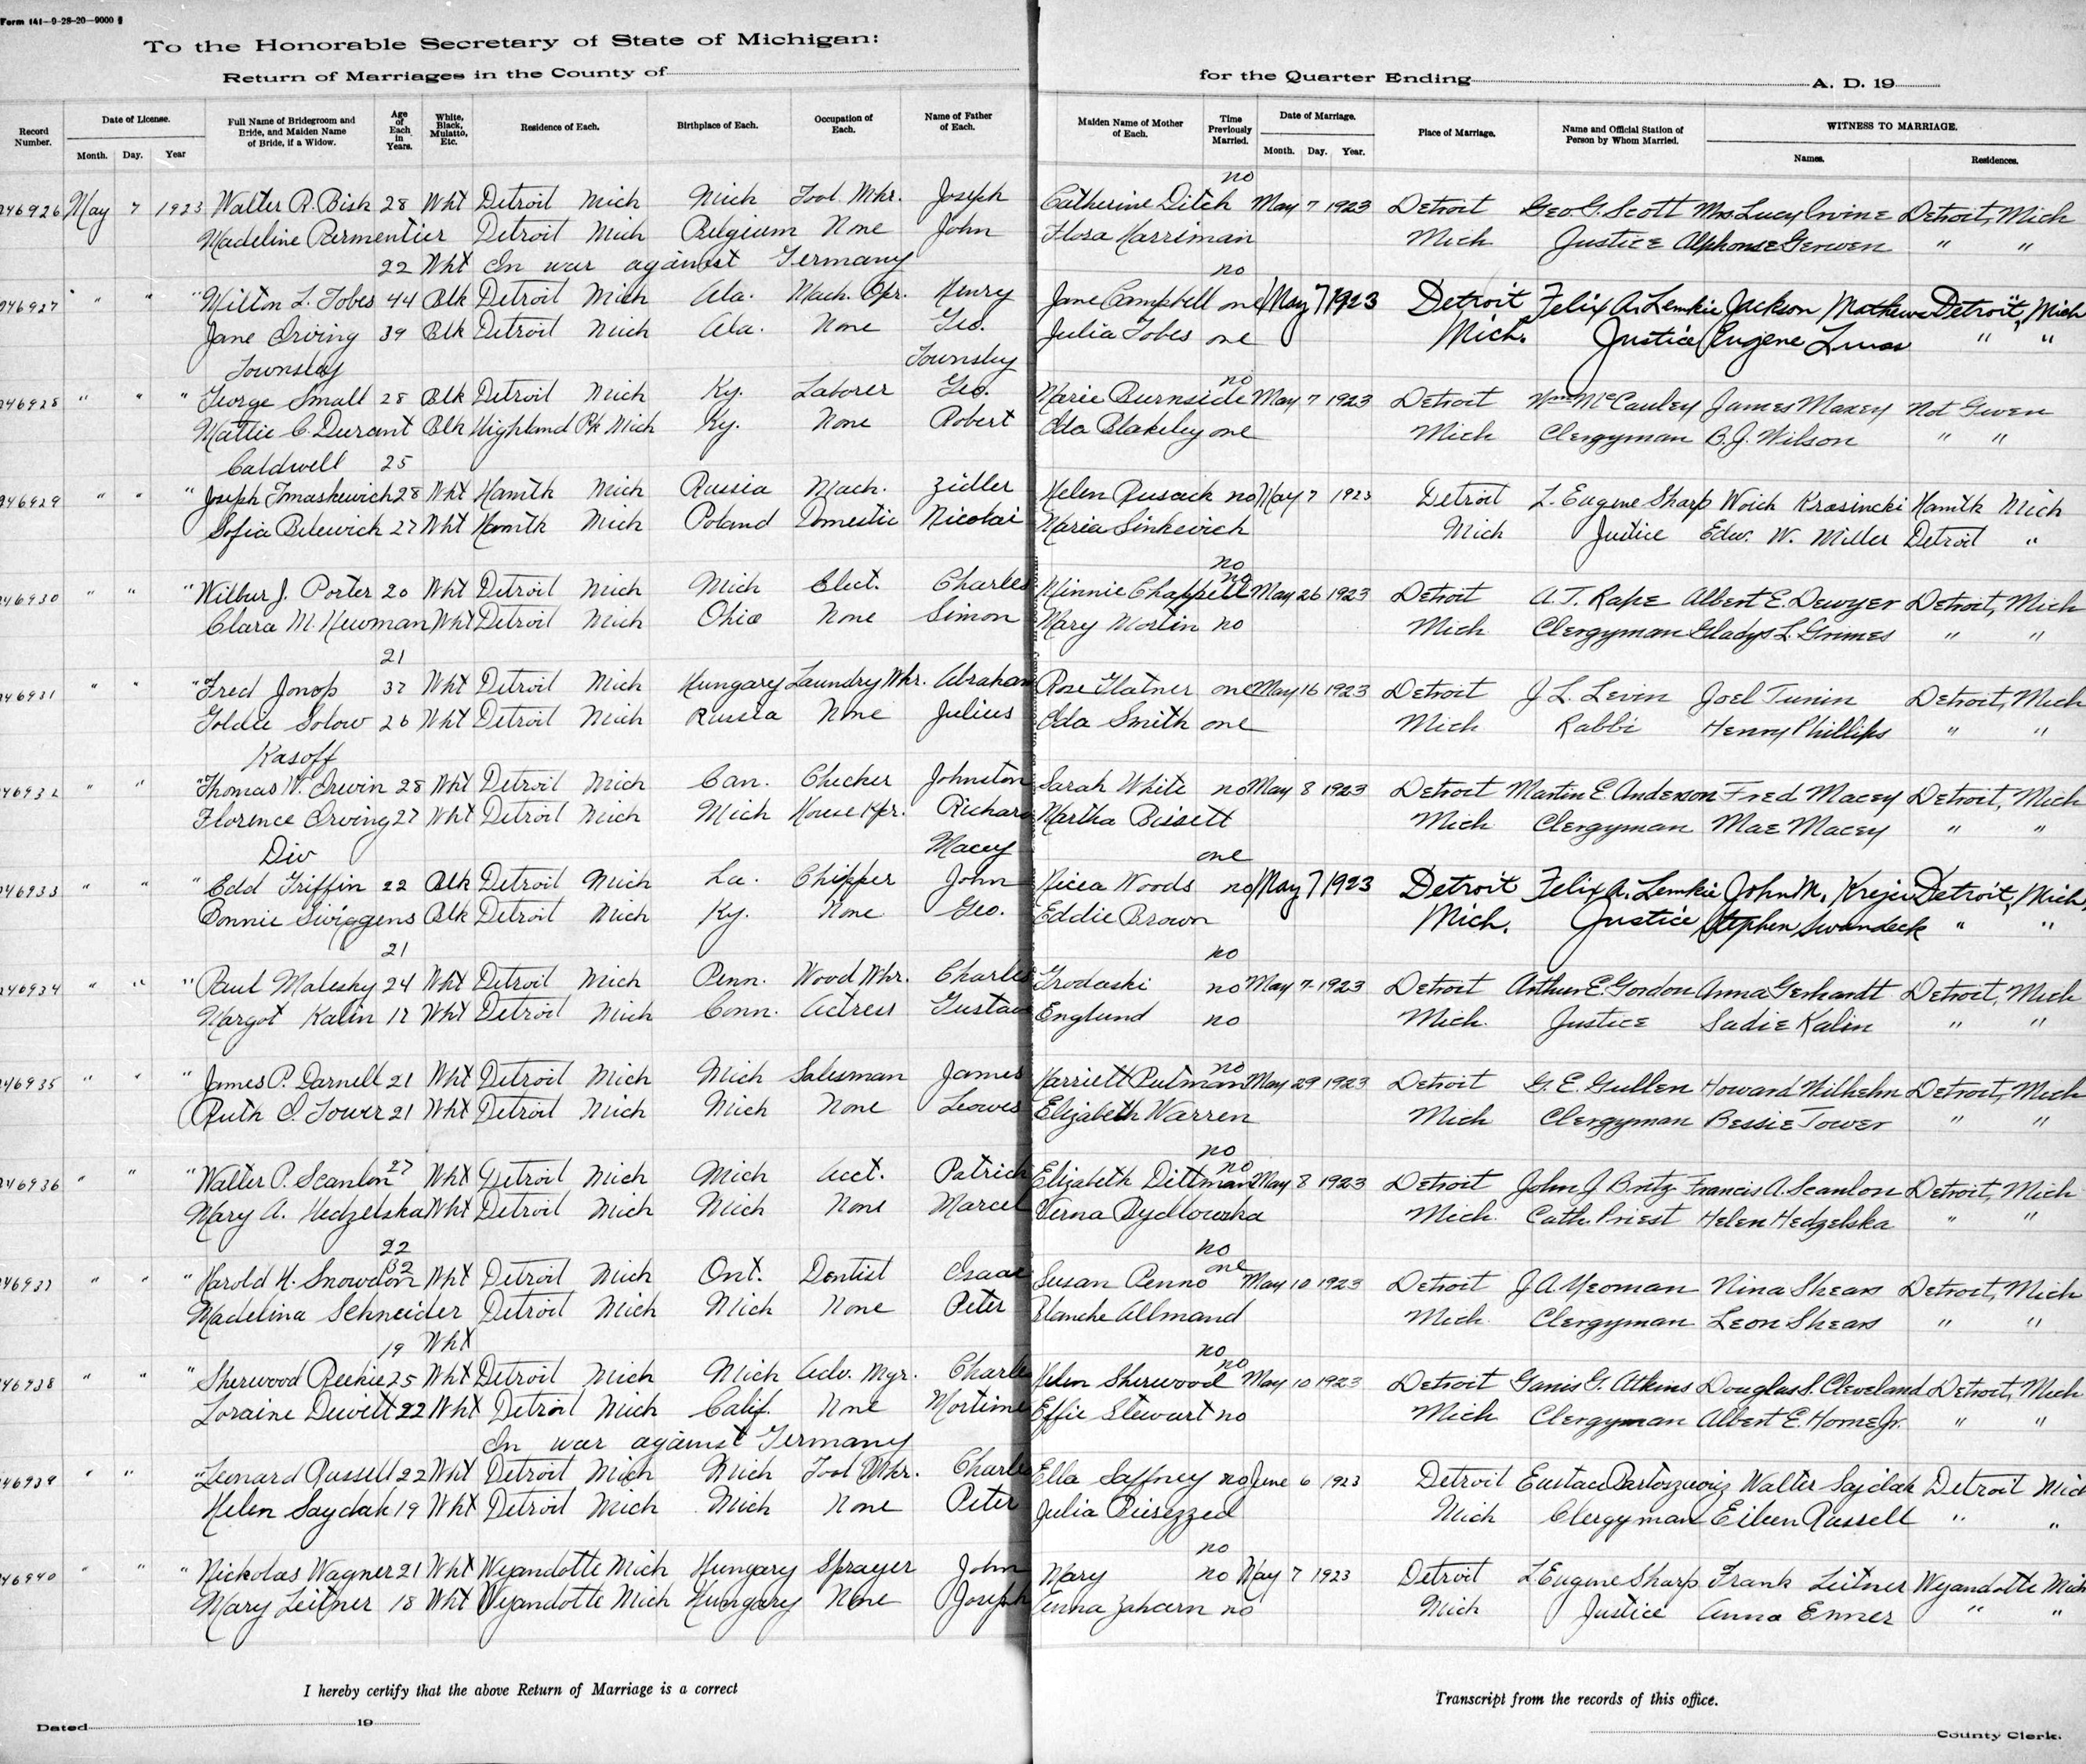 Form 141-9-28-20-9000
To the Honorable Secretary of State of Michigan:
Return of Marriages in the County of
for the Quarter Ending
A. D. 19
Record Number.
Date of License.
Month. Day. Year
Full Name of Bridegroom and Bride, and Maiden Name of Bride, if a Widow.
Age of Each in Years.
White, Black, Mulatto, Etc.
Residence of Each.
Birthplace of Each.
Occupation of Each.
Name of Father of Each.
Maiden Name of Mother of Each.
Time Previously Married.
Date of Marriage.
Month. Day. Year.
Place of Marriage.
Name and Official Station of Person by Whom Married.
WITNESS TO MARRIAGE.
Names. Residences.
no
246926 May 7 1923 Walter R. Bisk 28 Wht Detroit Mich Mich Tool Mkr. Joseph Catherine Ditch May 7 1923 Detroit Geo. G. Scott Mrs. Lucy Irvine Detroit, Mich
Madeline Parmentier Detroit Mich Belgium None John Flora Harriman Mich Justice Alphonse Gerwen " "
22 Wht In war against Germany no
246927 " " " Milton L. Tobes 44 Blk Detroit Mich Ala. Mach. Opr. Henry Jane Campbell one May 7 1923 Detroit Felix A. Lemkie Jackson Mathews Detroit, Mich
Jane Irving 39 Blk Detroit Mich Ala. None Geo. Julia Tobes one Mich. Justice Eugene " "
Townsley Townsley
no
246928 " " " George Small 28 Blk Detroit Mich Ky. Laborer Geo. Marie Burnside May 7 1923 Detroit Wm McCauley James Maxey Not Given
Mattie C. Durant Blk Highland Pk Mich Ky. None Robert Ida Blakeley one Mich Clergyman B. J. Wilson " "
Caldwell 25
246929 " " " Joseph Tmaskewich 28 Wht Hamtk Mich Russia Mach. Zidler Helen Rusack no May 7 1923 Detroit L. Eugene Sharp Woich Krasincki Hamtk Mich
Sofia Bilewich 27 Wht Hamtk Mich Poland Domestic Nicolai Maria Sinkevich Mich Justice Edw. W. Miller Detroit "
no
no
246930 " " " Wilbur J. Porter 20 Wht Detroit Mich Mich Elect. Charles Minnie Chappell May 26 1923 Detroit A. T. Rape Albert E. Dewyer Detroit, Mich
Clara M. Newman Wht Detroit Mich Ohio None Simon Mary Martin no Mich Clergyman Gladys L. Grimes " "
21
246931 " " " Fred Jonop 37 Wht Detroit Mich Hungary Laundry Wkr. Abraham Rose Glatner one May 16 1923 Detroit J. L. Levin Joel Tunin Detroit, Mich
Goldie Solow 26 Wht Detroit Mich Russia None Julius Ida Smith one Mich Rabbi Henry Phillips " "
Kasoff
246932 " " " Thomas W. Irwin 28 Wht Detroit Mich Can. Checker Johnston Sarah White no May 8 1923 Detroit Martin E. Anderson Fred Macey Detroit, Mich
Florence Irving 27 Wht Detroit Mich Mich House Kpr. Richard Martha Bissett Mich Clergyman Mae Macey " "
Div Macey one
246933 " " " Edd Griffin 22 Blk Detroit Mich La. Chipper John Nicea Woods no May 7 1923 Detroit Felix A. Lemkie John M. Krejci Detroit, Mich.
Bonnie Swiggens Blk Detroit Mich Ky. None Geo. Eddie Brown Mich. Justice Stephen Swandeck " "
21 no
246934 " " " Paul Malesky 24 Wht Detroit Mich Penn. Wood Wkr. Charles Grodaski no May 7 1923 Detroit Arthur E. Gordon Anna Gerhardt Detroit, Mich
Margot Kalin 17 Wht Detroit Mich Conn. Actress Gustave Englund no Mich. Justice Sadie Kalin " "
no
246935 " " " James P. Darnell 21 Wht Detroit Mich Mich Salesman James Harriett Putman May 29 1923 Detroit G. E. Gullen Howard Wilhelm Detroit, Mich
Ruth I. Tower 21 Wht Detroit Mich Mich None Leowes Elizabeth Warren Mich Clergyman Bessie Tower " "
no
no
246936 " " " Walter P. Scanlon 27 Wht Detroit Mich Mich Acct. Patrick Elizabeth Dittman May 8 1923 Detroit John J Britz Francis A. Scanlon Detroit, Mich
Mary A. Hedzelska Wht Detroit Mich Mich None Marcel Verna Rydlowska Mich. Cath. Priest Helen Hedzelska " "
22 no
32 one
246937 " " " Harold H. Snowdon Wht Detroit Mich Ont. Dentist Isaac Susan Penno May 10 1923 Detroit J. A. Yeoman Nina Shears Detroit, Mich
Madelina Schneider Detroit Mich Mich None Peter Blanche Allmand Mich. Clergyman Leon Shears " "
19 Wht no
no
246938 " " " Sherwood Reekie 25 Wht Detroit Mich Mich Adv. Mgr. Charles Helen Sherwood May 10 1923 Detroit Ganis G. Atkins Douglas S. Cleveland Detroit, Mich
Loraine Dewitt 22 Wht Detroit Mich Calif. None Mortimer Effie Stewart no Mich Clergyman Albert E. Horne Jr. " "
In war against Germany
246939 " " " Leonard Russell 22 Wht Detroit Mich Mich Tool Mkr. Charles Ella Saffney no June 6 1923 Detroit Eustace Bartoszewicz Walter Sajdak Detroit Mich
Helen Saydak 19 Wht Detroit Mich Mich None Peter Julia Mich Clergyman Eileen Russell " "
no
246940 " " " Nickolas Wagner 21 Wht Wyandotte Mich Hungary Sprayer John Mary no May 7 1923 Detroit L Eugene Sharp Frank Leitner Wyandotte Mich
Mary Leitner 18 Wht Wyandotte Mich Hungary None Joseph Anna Zaharn no Mich Justice Anna Enner " "
I hereby certify that the above Return of Marriage is a correct
Transcript from the records of this office.
Dated 19
County Clerk.